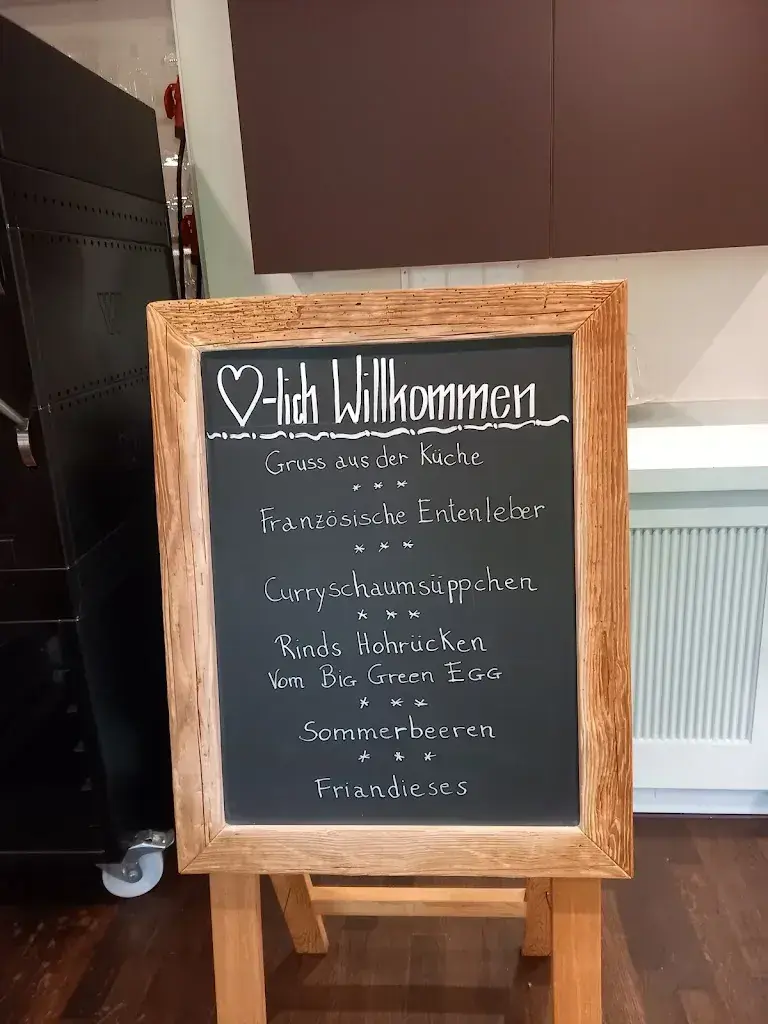 ♡-lich Willkommen
Gruss aus der Küche
* * *
Französische Entenleber
* * *
Curryschaumsüppchen
* * *
Rinds Hohrücken
Vom Big Green Egg
* * *
Sommerbeeren
* * *
Friandieses